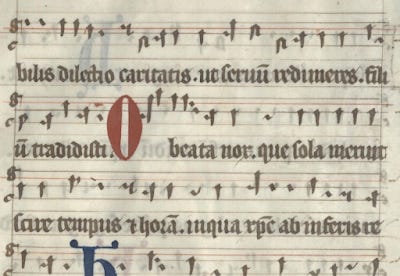 bilis dilectio caritatis. ut seruū redimeres. fili
ū tradidisti. O beata nox. que sola meruit
scire tempus ⁊ horā. inqua xp̄c ab inferis re
h